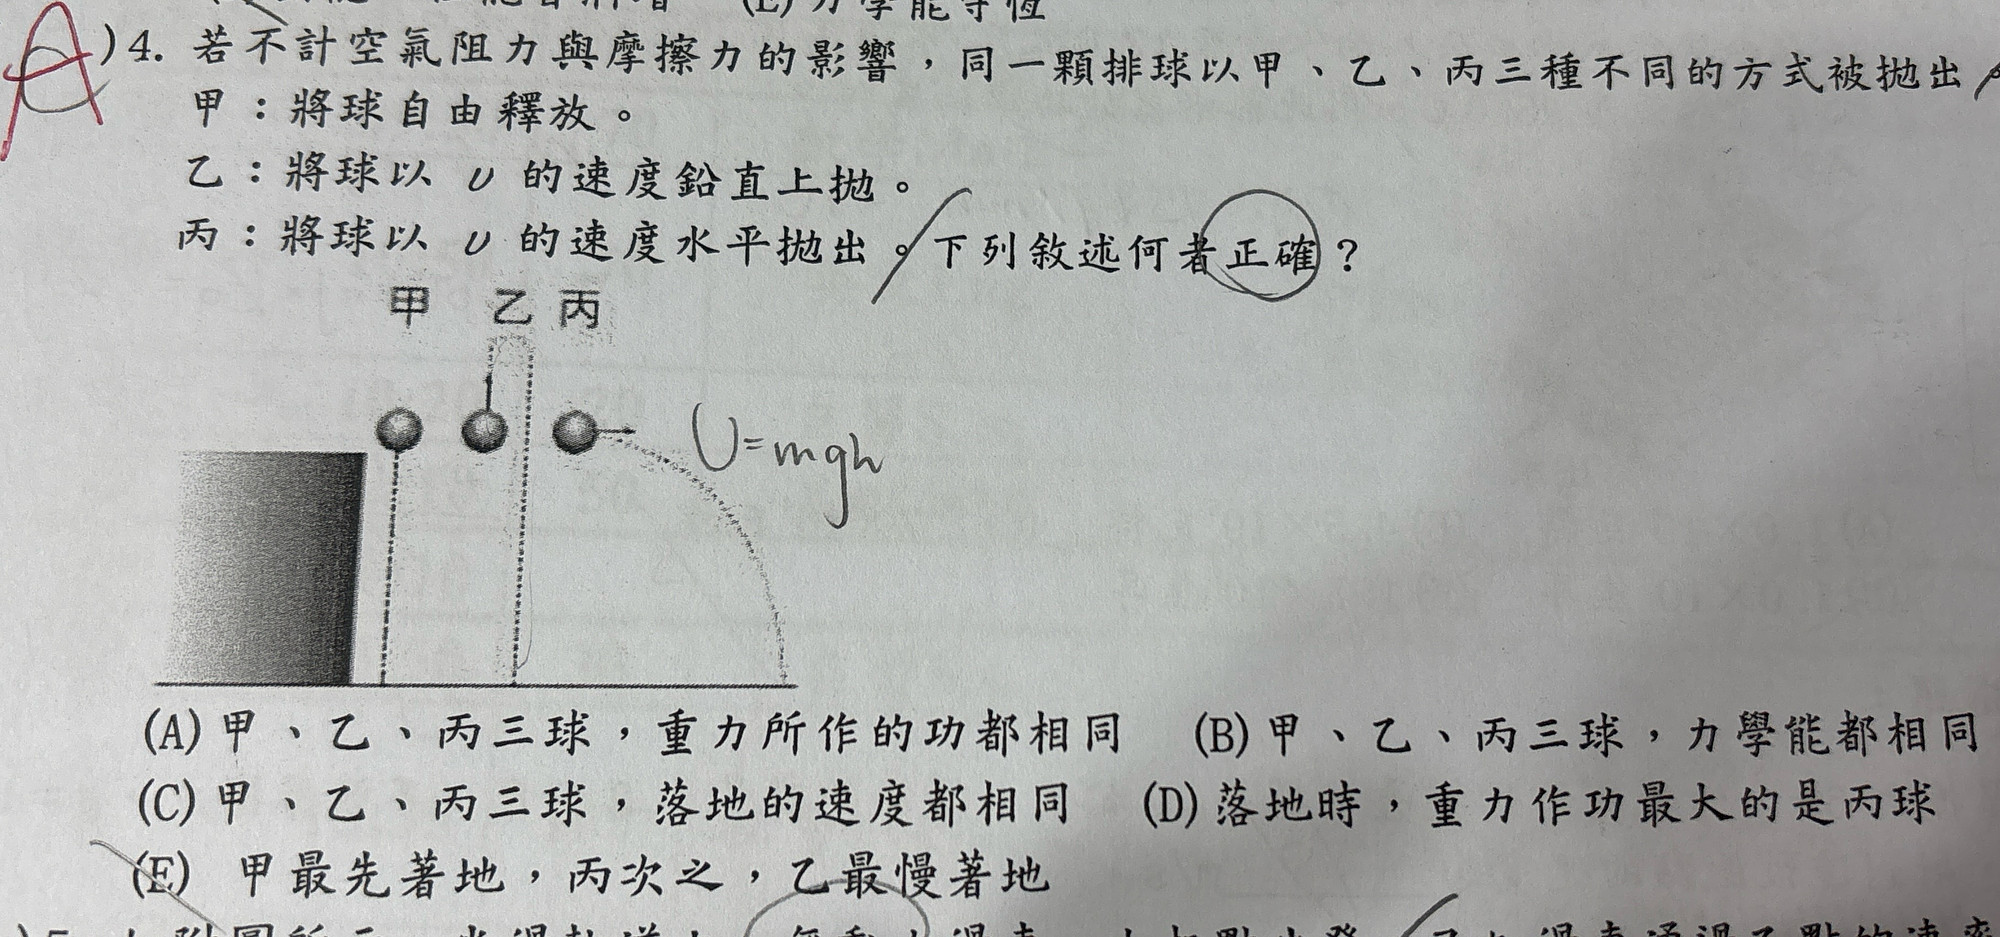 (E)力學能守恆
A )4. 若不計空氣阻力與摩擦力的影響，同一顆排球以甲、乙、丙三種不同的方式被拋出
甲：將球自由釋放。
乙：將球以 υ 的速度鉛直上拋。
丙：將球以 υ 的速度水平拋出。下列敘述何者正確？
甲 乙 丙
U=mgh
(A)甲、乙、丙三球，重力所作的功都相同 (B)甲、乙、丙三球，力學能都相同
(C)甲、乙、丙三球，落地的速度都相同 (D)落地時，重力作功最大的是丙球
(E) 甲最先著地，丙次之，乙最慢著地